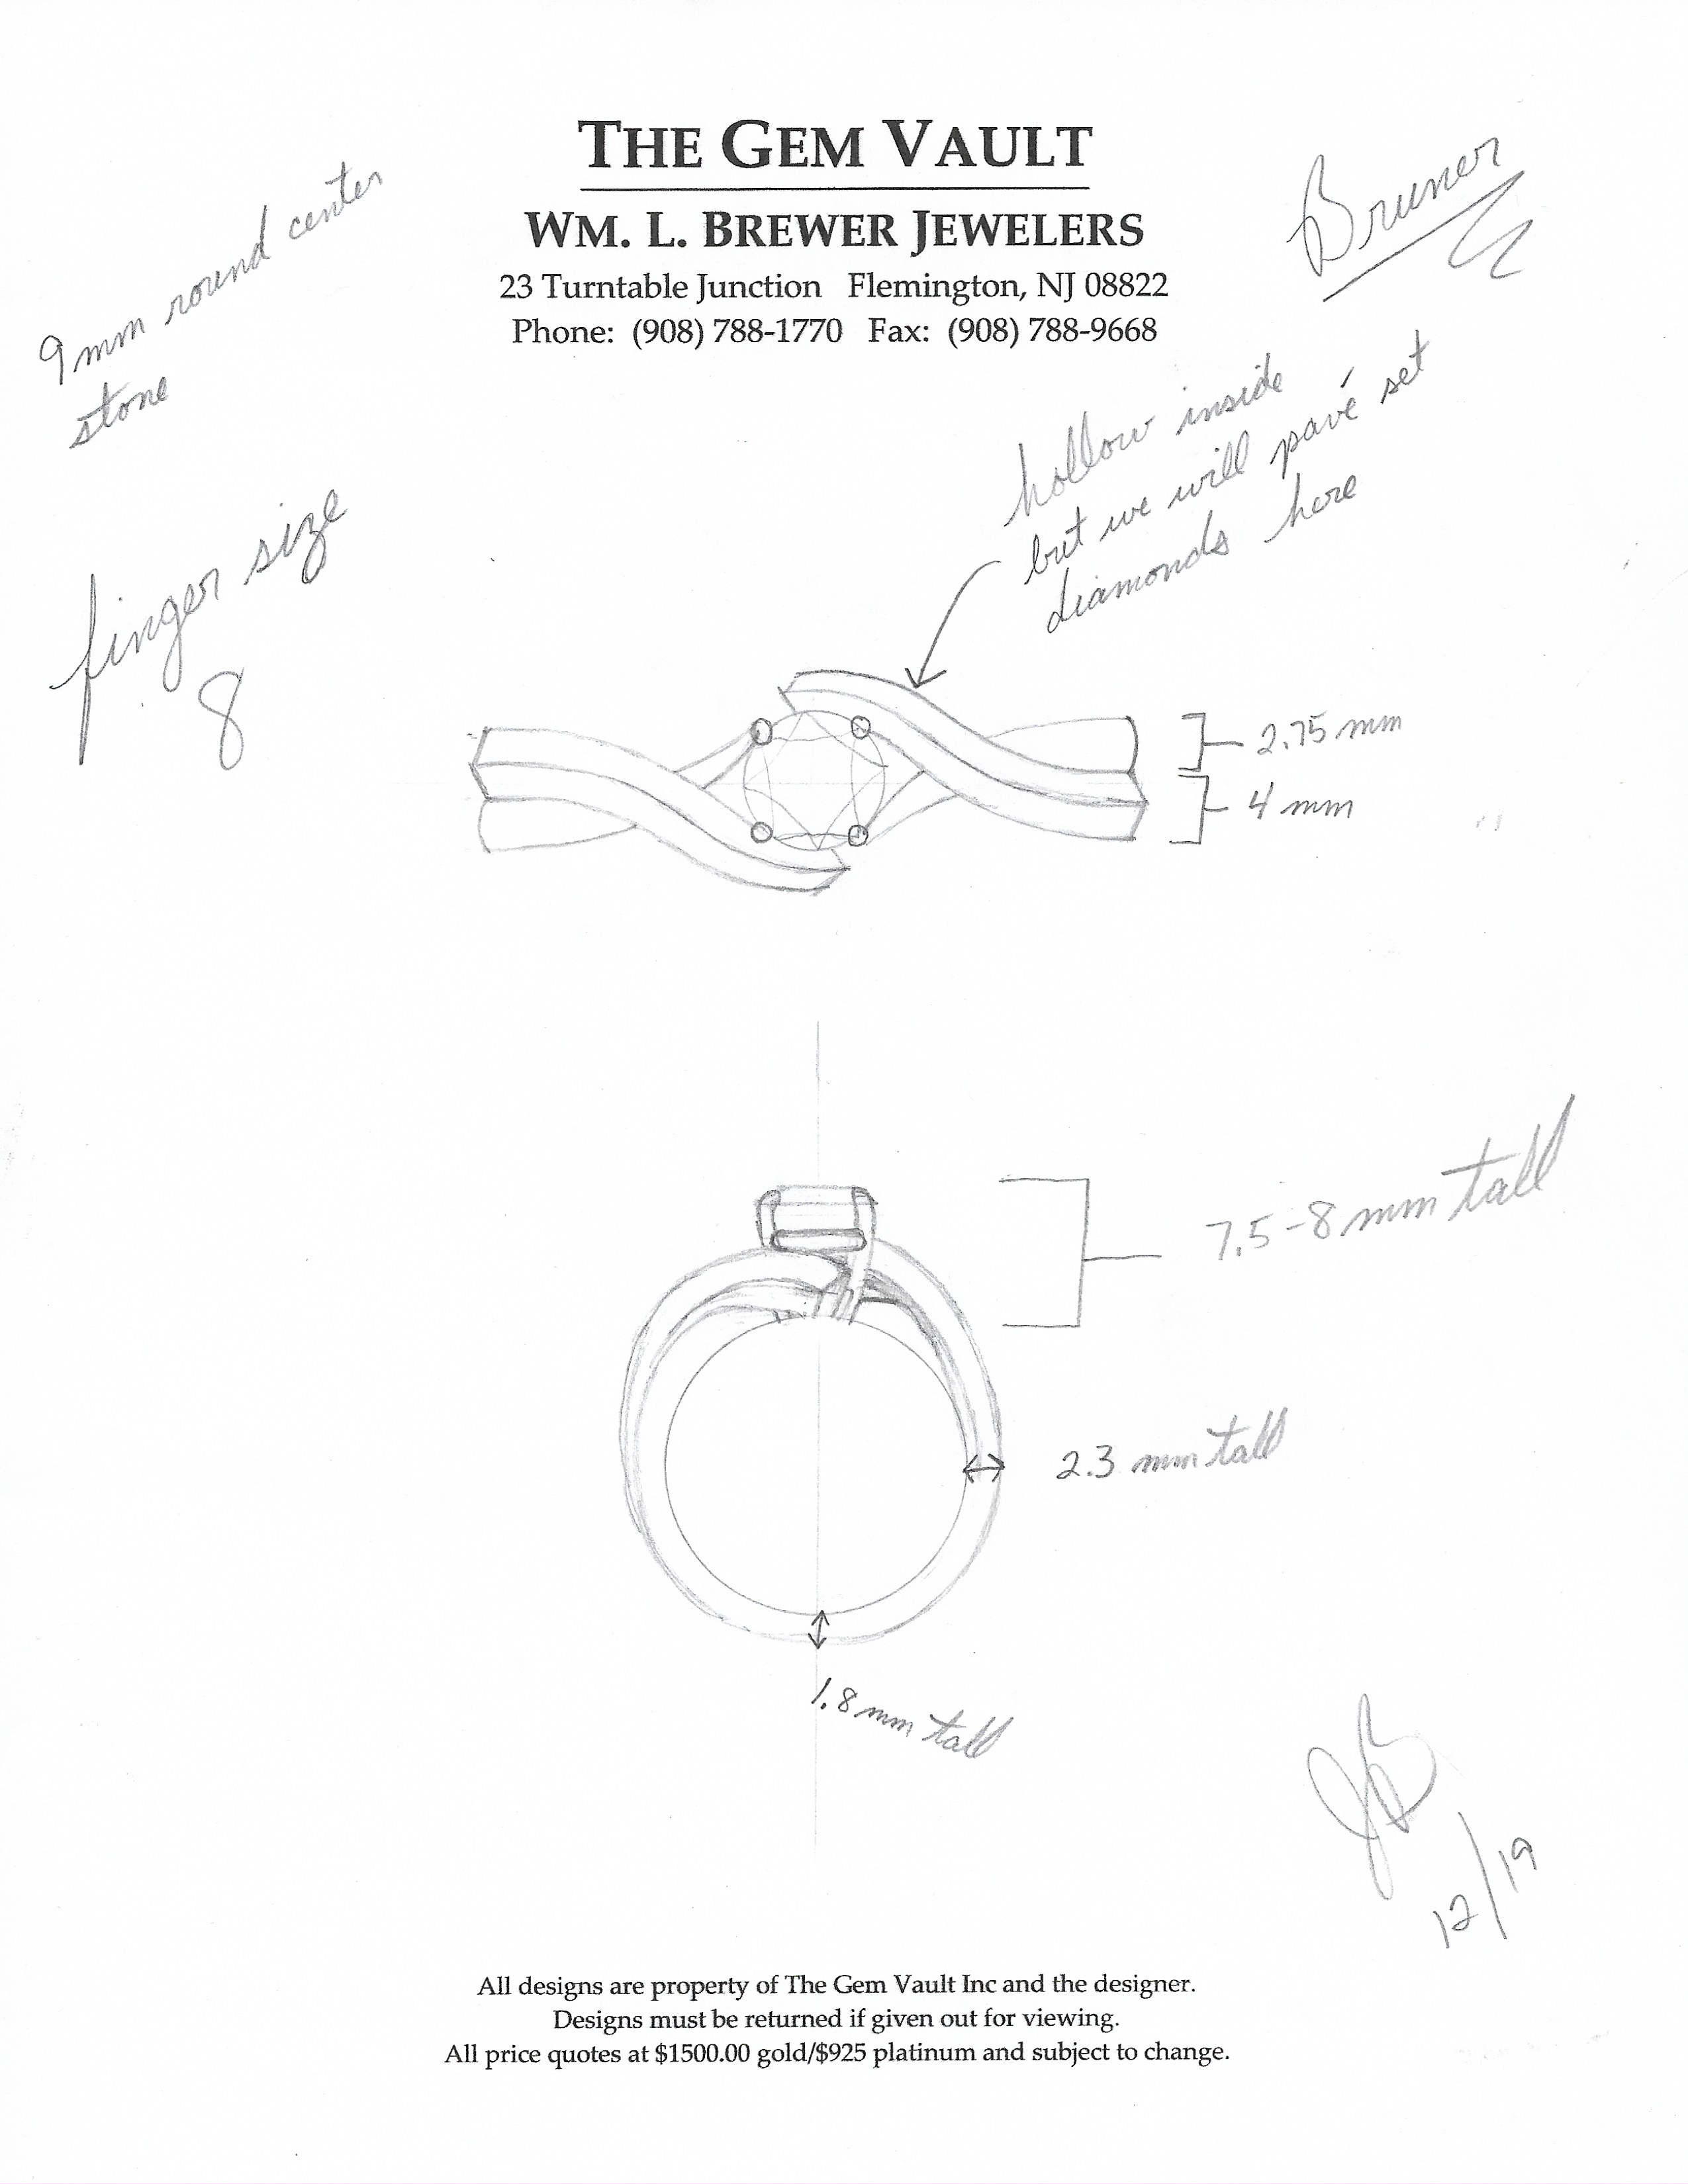 THE GEM VAULT
WM. L. BREWER JEWELERS
23 Turntable Junction Flemington, NJ 08822
Phone: (908) 788-1770 Fax: (908) 788-9668
Bruner
9mm round center
stone
finger size
8
hollow inside
but we will pavé set
diamonds here
2.75 mm
4 mm
7.5-8 mm tall
2.3 mm tall
1.8 mm tall
JB
12/19
All designs are property of The Gem Vault Inc and the designer.
Designs must be returned if given out for viewing.
All price quotes at $1500.00 gold/$925 platinum and subject to change.